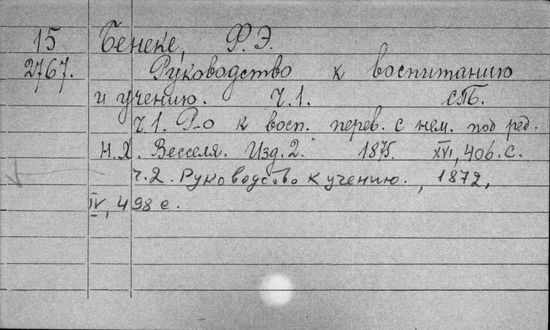 15 Бенеке, Ф.Э.
2767. Руководство к воспитанию
и учению. Ч.1. СПБ.
Ч.1. Р-о к восп. перев. с нем. под ред.
Н.Х. Весселя. Изд. 2. 1875. XVI, 406. с.
Ч.2. Руководство к учению., 1872,
IV, 498 с.